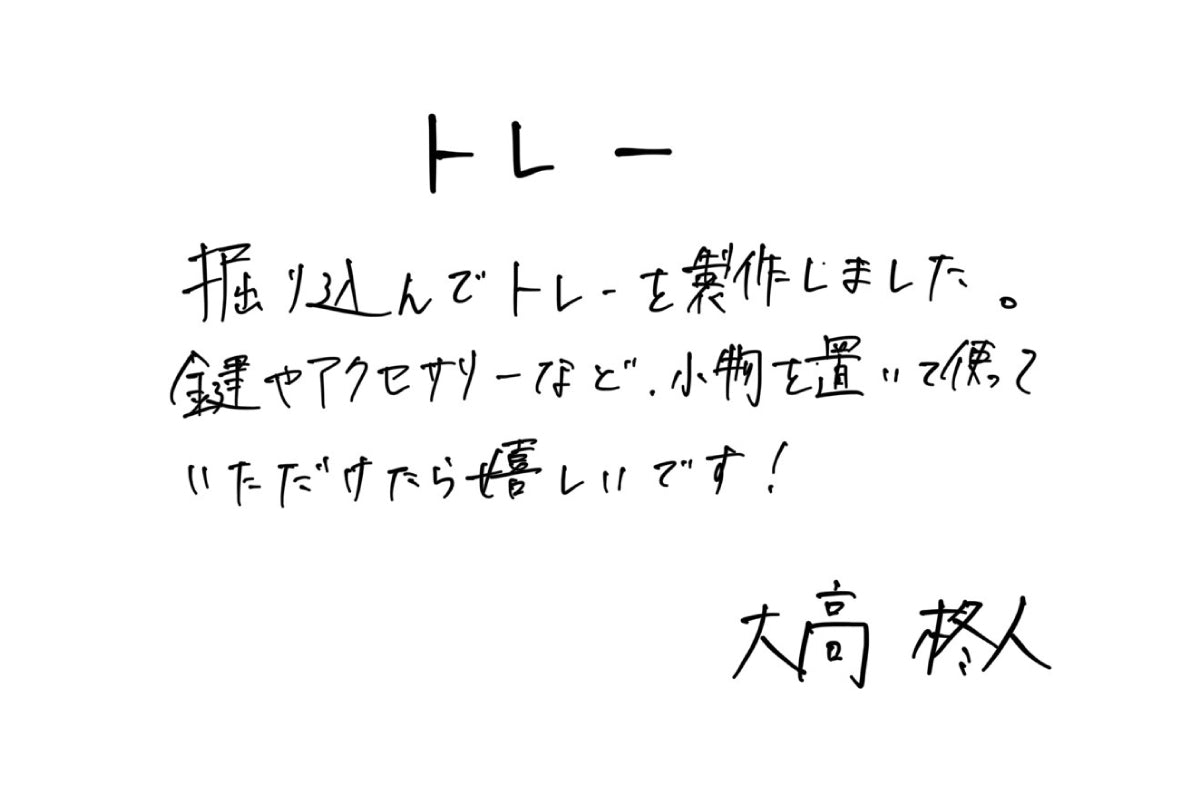 トレー
掘り込んでトレーを製作しました。
鍵やアクセサリーなど、小物を置いて使って
いただけたら嬉しいです!
大高 柊人